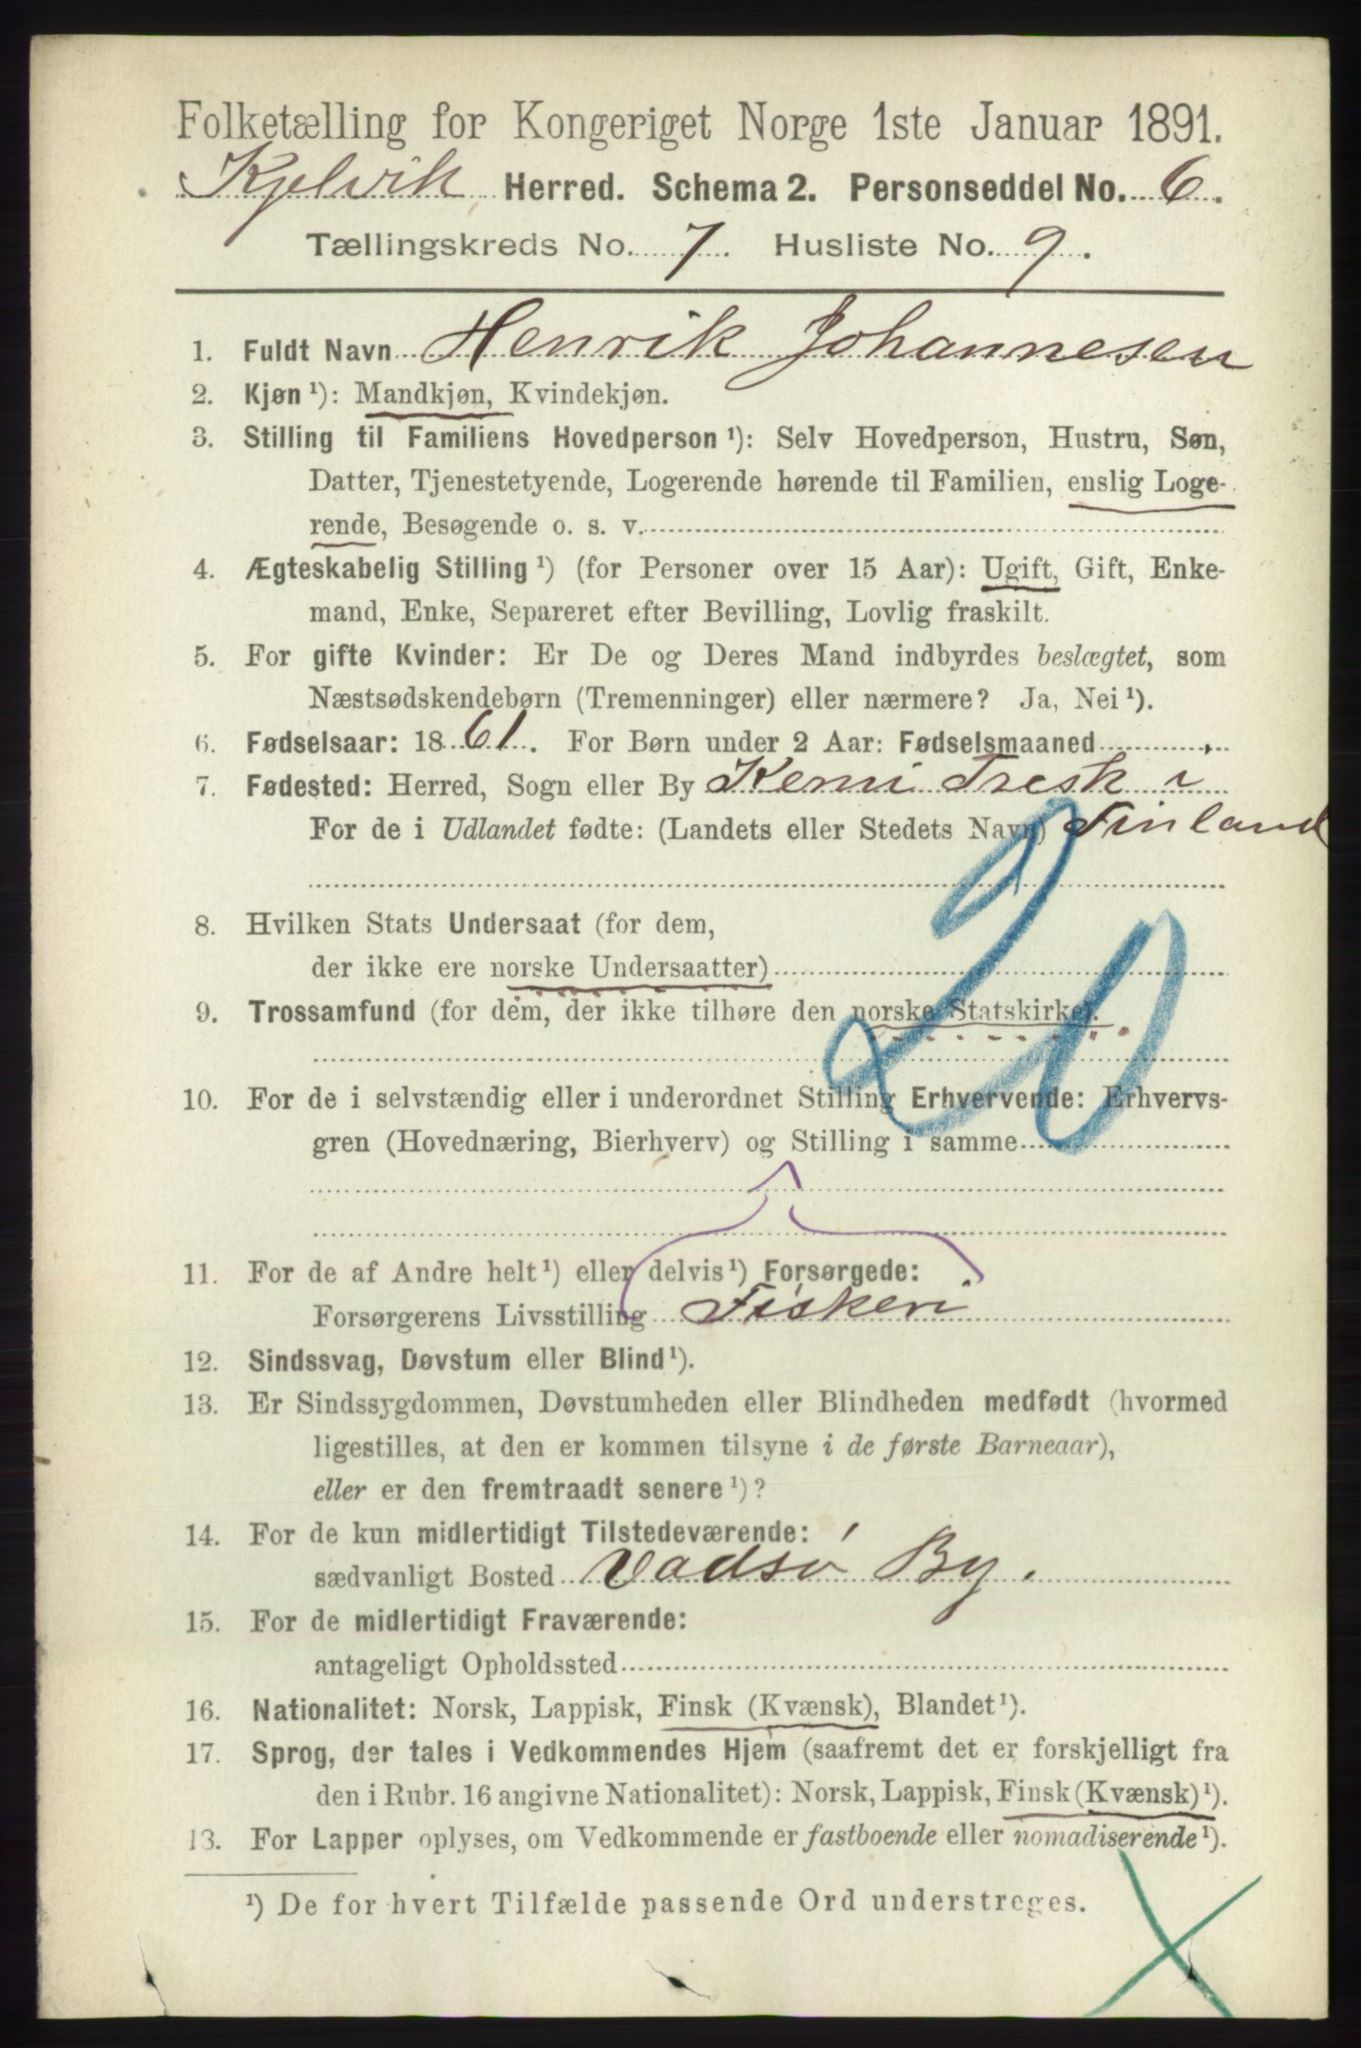 Folketælling for Kongeriget Norge 1ste Januar 1891.
Kjelvik Herred. Schema 2. Personseddel No. 6.
Tællingskreds No. 7. Husliste No. 9.
1. Fuldt Navn Henrik Johannesen
2. Kjøn ¹): Mandkjøn, Kvindekjøn.
3. Stilling til Familiens Hovedperson ¹): Selv Hovedperson, Hustru, Søn,
Datter, Tjenestetyende, Logerende hørende til Familien, enslig Loge-
rende, Besøgende o. s. v.
4. Ægteskabelig Stilling ¹) (for Personer over 15 Aar): Ugift, Gift, Enke-
mand, Enke, Separeret efter Bevilling, Lovlig fraskilt.
5. For gifte Kvinder: Er De og Deres Mand indbyrdes beslægtet, som
Næstsødskendebørn (Tremenninger) eller nærmere? Ja, Nei ¹).
6. Fødselsaar: 1861. For Børn under 2 Aar: Fødselsmaaned
7. Fødested: Herred, Sogn eller By Kemi Tresk i
For de i Udlandet fødte: (Landets eller Stedets Navn) Finland
20
8. Hvilken Stats Undersaat (for dem,
der ikke ere norske Undersaatter)
9. Trossamfund (for dem, der ikke tilhøre den norske Statskirke).
10. For de i selvstændig eller i underordnet Stilling Erhvervende: Erhvervs-
gren (Hovednæring, Bierhverv) og Stilling i samme
11. For de af Andre helt ¹) eller delvis ¹) Forsørgede:
Forsørgerens Livsstilling Fiskeri
12. Sindssvag, Døvstum eller Blind ¹).
13. Er Sindssygdommen, Døvstumheden eller Blindheden medfødt (hvormed
ligestilles, at den er kommen tilsyne i de første Barneaar),
eller er den fremtraadt senere ¹)?
14. For de kun midlertidigt Tilstedeværende:
sædvanligt Bosted Vadsø By.
15. For de midlertidigt Fraværende:
antageligt Opholdssted
16. Nationalitet: Norsk, Lappisk, Finsk (Kvænsk), Blandet ¹).
17. Sprog, der tales i Vedkommendes Hjem (saafremt det er forskjelligt fra
den i Rubr. 16 angivne Nationalitet): Norsk, Lappisk, Finsk (Kvænsk) ¹).
13. For Lapper oplyses, om Vedkommende er fastboende eller nomadiserende ¹).
¹) De for hvert Tilfælde passende Ord understreges.